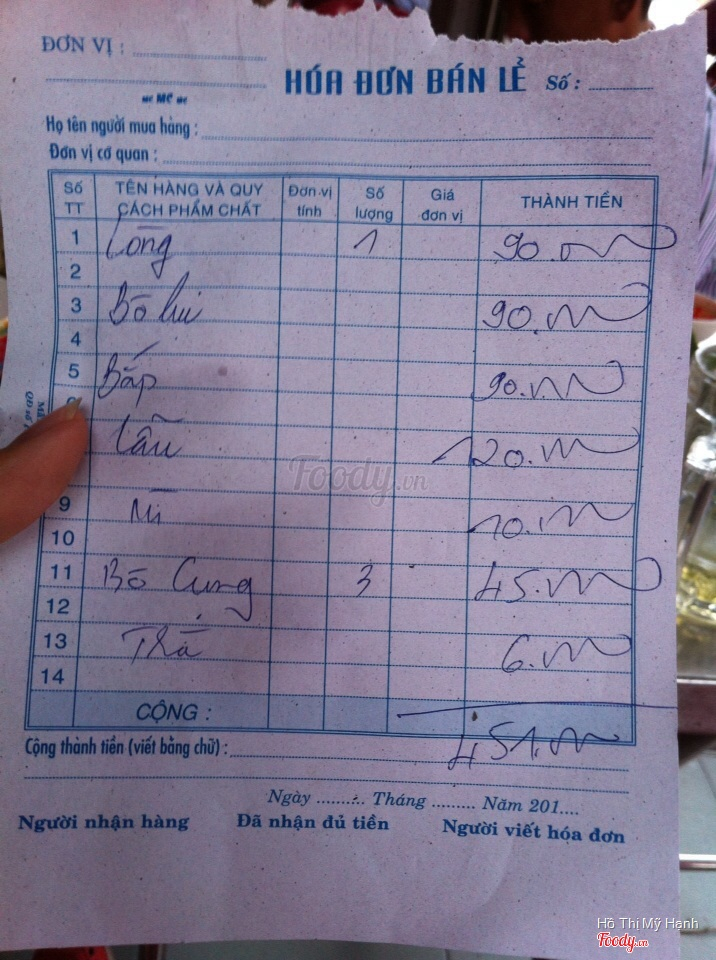 ĐƠN VỊ :
HÓA ĐƠN BÁN LẺ Số :
MC
Họ tên người mua hàng :
Đơn vị cơ quan :
Số TT TÊN HÀNG VÀ QUY CÁCH PHẨM CHẤT Đơn vị tính Số lượng Giá đơn vị THÀNH TIỀN
1 Lòng 1 90.000
2
3 Bò 90.000
4
5 Bắp 90.000
Lẩu 120.000
9 Mì 10.000
10
11 Bò Cung 3 45.000
12
13 6.000
14
CỘNG :
451.000
Cộng thành tiền (viết bằng chữ) :
Ngày .......... Tháng ......... Năm 201....
Người nhận hàng Đã nhận đủ tiền Người viết hóa đơn
Foody.vn
Hồ Thị Mỹ Hạnh
Foody.vn